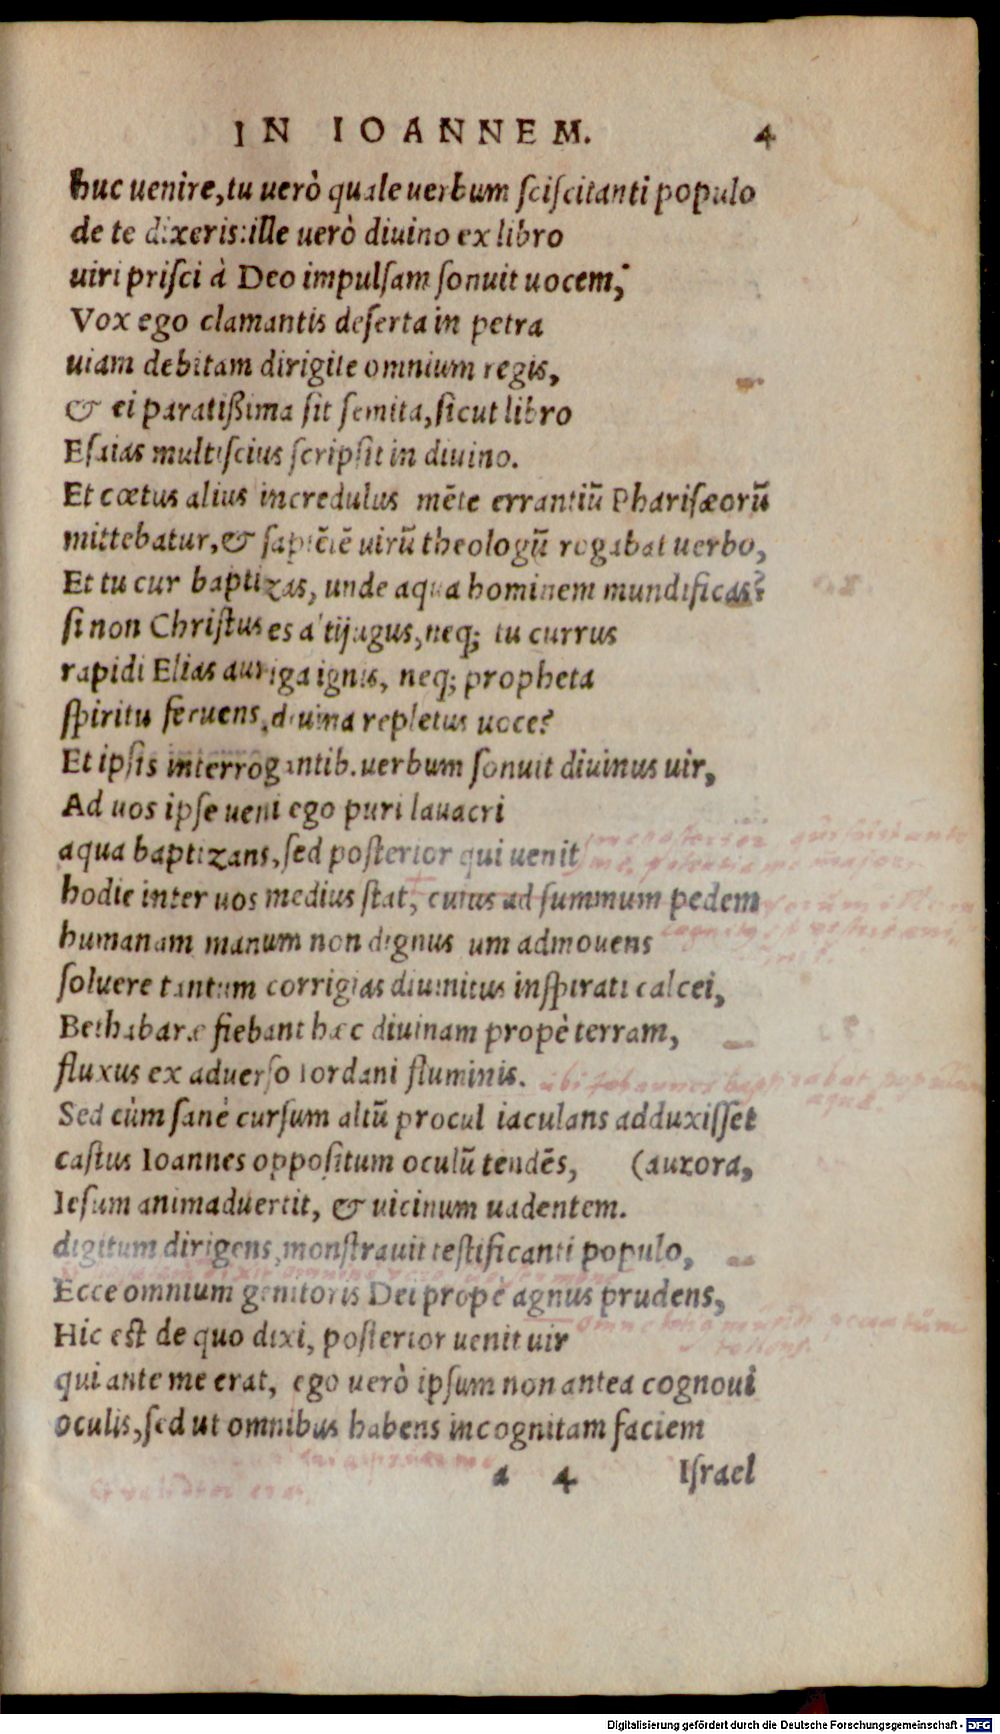 IN IOANNEM. 4
huc uenire, tu uerò quale uerbum sciscitanti populo
de te dixeris: ille uerò diuino ex libro
uiri prisci à Deo impulsam sonuit uocem,
Vox ego clamantis deserta in petra
uiam debitam dirigite omnium regis,
& ei paratißima sit semita, sicut libro
Esaias multiscius scripsit in diuino.
Et cœtus alius incredulus mēte errantiū Pharisæorū
mittebatur, & sapiētē uirū theologū rogabat uerbo,
Et tu cur baptizas, unde aqua hominem mundificas?
si non Christus es altijugus, neq; tu currus
rapidi Elias auriga ignis, neq; propheta
spiritu feruens, diuina repletus uoce?
Et ipsis interrogantib. uerbum sonuit diuinus uir,
Ad uos ipse ueni ego puri lauacri
aqua baptizans, sed posterior qui uenit
hodie inter uos medius stat, cuius ad summum pedem
humanam manum non dignus sum admouens
soluere tantum corrigias diuinitus inspirati calcei,
Bethabaræ fiebant hæc diuinam propè terram,
fluxus ex aduerso Iordani fluminis.
Sed cùm sanè cursum altū procul iaculans adduxisset
castus Ioannes oppositum oculū tendēs, (aurora,
Iesum animaduertit, & uicinum uadentem.
digitum dirigens, monstrauit testificanti populo,
Ecce omnium genitoris Dei propè agnus prudens,
Hic est de quo dixi, posterior uenit uir
qui ante me erat, ego uerò ipsum non antea cognoui
oculis, sed ut omnibus habens incognitam faciem
a 4 Israel
Digitalisierung gefördert durch die Deutsche Forschungsgemeinschaft - DFG